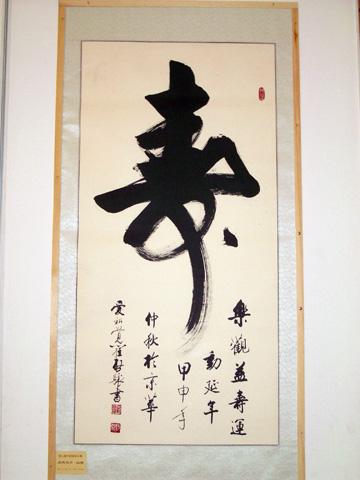 寿
樂觀益壽運
動延年
甲申年
仲秋於京華
愛新覺羅 書